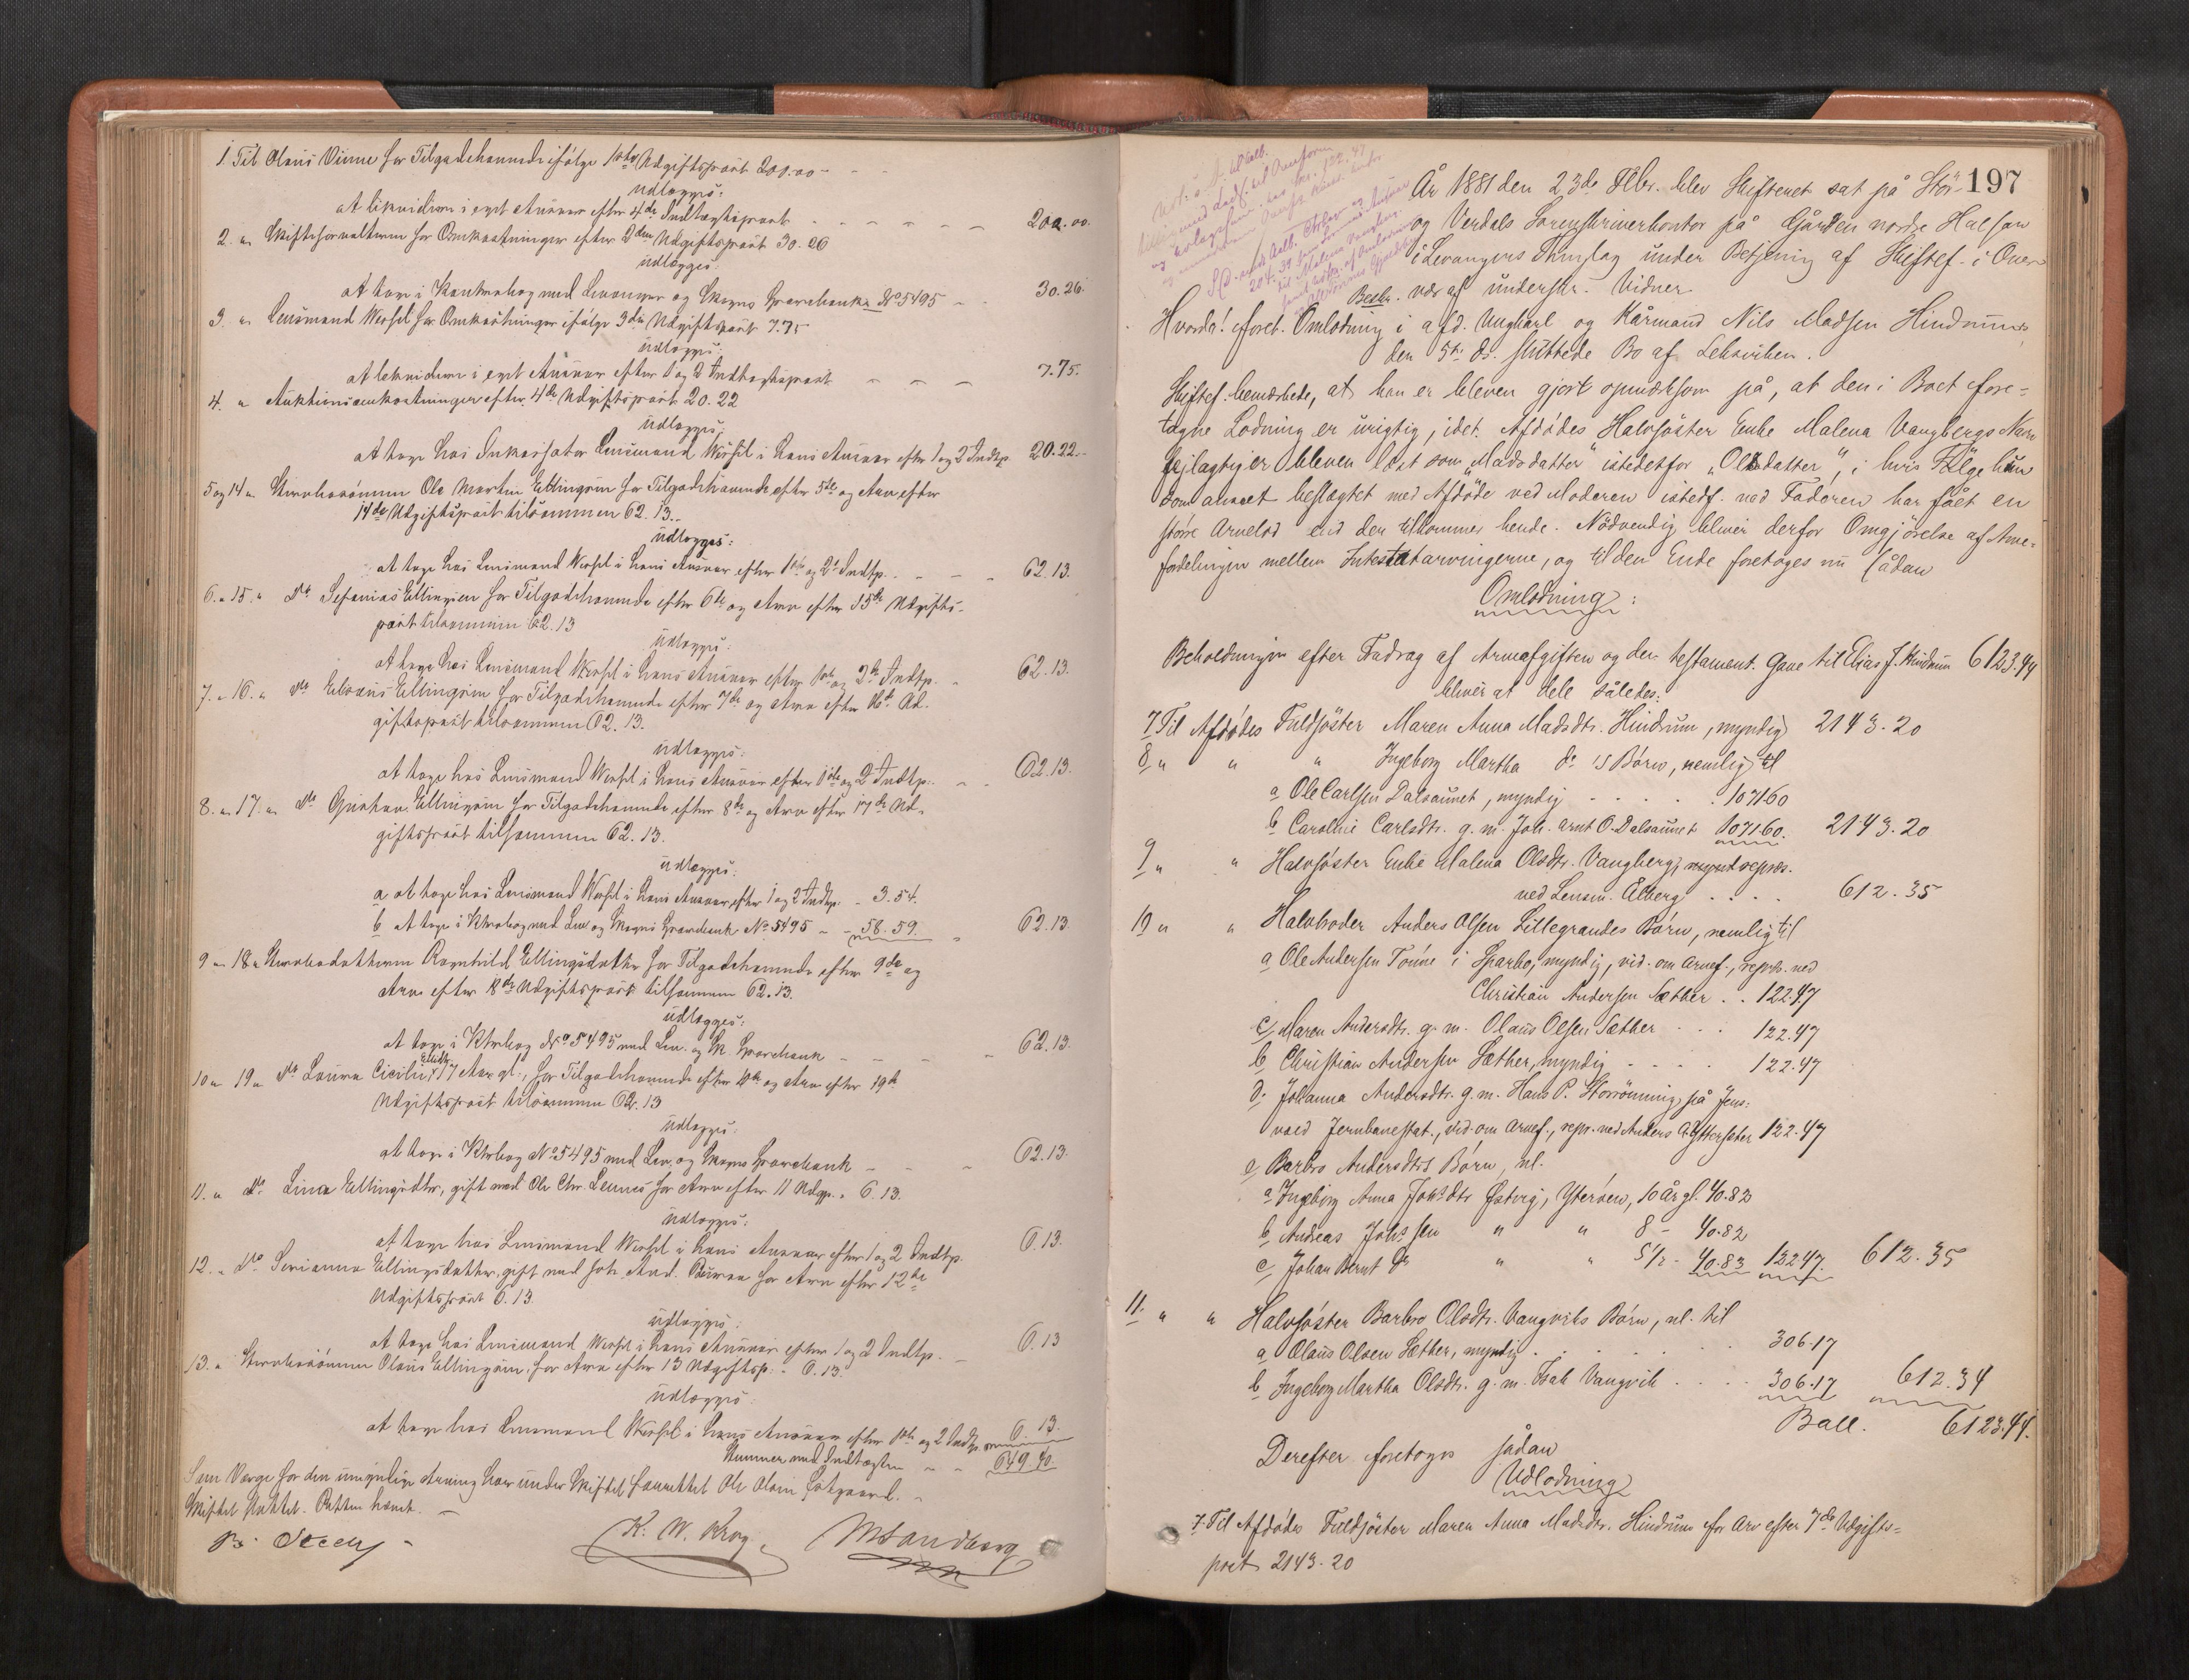 1. Til Olaus Vinne for Tilgodehavende ifølge 1ste Udgiftspost 200.00
udlægges:
at likvidere i eget Ansvar efter 4de Indtægtspost 200.00.
2. " Skifteforvalteren for Omkostninger efter 2den Udgiftspost 30.26
udlægges:
at tage i Kontrabog med Levanger og Skogns Sparebank No 5495 30.26.
3. " Lensmand Wessel for Omkostninger ifølge 3die Udgiftspost 7.75
udlægges:
at likvidere i eget Ansvar efter 1 og 2 Indtægtspost 7.75.
4. " Auktionsomkostninger efter 4de Udgiftspost 20.22
udlægges:
at tage hos Inkassator Lensmand Wessel i hans Ansvar efter 1 og 2 Indtp. 20.22.
5 og 14 " Sterbosønnen Ole Martin Ellingsen for Tilgodehavende efter 5te og Arv efter
14de Udgiftspost tilsammen 62.13.
udlægges:
at tage hos Lensmand Wessel i hans Ansvar efter 1ste og 2d Indtp. 62.13.
6. " 15. " do Sefanias Ellingsen for Tilgodehavende efter 6te og Arv efter 15de Udgifts-
post tilsammen 62.13
udlægges:
at tage hos Lensmand Wessel i hans Ansvar efter 1ste og 2de Indtp. 62.13.
7. " 16. " do Edvard Ellingsen for Tilgodehavende efter 7de og Arv efter 16de Ud-
giftspost tilsammen 62.13.
udlægges:
at tage hos Lensmand Wessel i hans Ansvar efter 1ste og 2 Indtp. 62.13.
8. " 17. " do Gustav Ellingsen for Tilgodehavende efter 8de og Arv efter 17de Ud-
giftspost tilsammen 62.13.
udlægges:
a at tage hos Lensmand Wessel i hans Ansvar efter 1 og 2 Indtp. 3.54.
b at tage i Ktrabog med Lev. og Skogns Sparebank No 5495 58.59. 62.13
9 " 18 " Sterbodatteren Ragnhild Ellingsdatter for Tilgodehavende efter 9de og
Arv efter 18de Udgiftspost tilsammen 62.13.
udlægges:
at tage i Ktrbog No 5495 med Lev. og Sk. Sparebank 62.13.
10 " 19 " do Laura Cicilie Elldtr. 17 Aar gl., for Tilgodehavende efter 10de og Arv efter 19de
Udgiftspost tilsammen 62.13
udlægges:
at tage i Ktrbog No 5495 med Lev. og Skogns Sparebank 62.13.
11. " do Lina Ellingsdtr, gift med Ole Chr. Lennes for Arv efter 11 Udgp. 6.13.
udlægges:
at tage hos Lensmand Wessel i hans Ansvar efter 1 og 2 Indtp. 6.13.
12. " do Serianna Ellingsdatter, gift med Joh. And. for Arv efter 12te
Udgiftspost 6.13.
udlægges:
at tage hos Lensmand Wessel i hans Ansvar efter 1 og 2 Indtp. 6.13
13. " Sterbosønnen Olaus Ellingsen, for Arv efter 13 Udgiftsp. 6.13.
udlægges
at tage hos Lensmand Wessel i hans Ansvar efter 1ste og 2 Indtp. 6.13.
Stemmer med Indtægten 649.40.
Som Værge for den umyndige Arving har under Skiftet fungeret Ole Olsen
Skiftet sluttet. Retten hævet.
K. W. Krog. M Sandberg
197
År 1881 den 23de Febr. blev Skifteret sat på Stör-
og Verdals Sorenskriverkontor på Gården nordre Halsan
i Levangers Thinglag under Betjening af Skiftef. i Over-
vær af underskr. Vidner.
Hvorda! Foret. Omlodning i afd. Ungkarl og Kårmand Nils Madsen Hindrums
den 5te ds. sluttede Bo af Leksviken.
Skiftef. bemærkede, at han er bleven gjort opmærksom på, at den i Boet fore-
tagne Lodning er urigtig, idet Afdødes Halvsöster Enke Malena Vangbergs Navn
fejlagtig er bleven læst som "Madsdatter" istedetfor "Olsdatter", i hvis Følge hun
som besłægtet med Afdøde ved Moderen istedf. ved Faderen har fået en
større Arvelod end den tilkommer hende. Nödvendig bliver derfor Omgjörelse af Arve-
fordelingen mellem Intestatarvingerne, og til den Ende foretoges nu sådan
Omlodning:
Beholdningen efter Fradrag af Arveafgiften og den testament. Gave til Elias J. Hindrum 6123.44
bliver at dele således:
7 Til Afdødes Fuldsöster Maren Anna Madsdtr. Hindrum, myndig 2143.20
8 " " " Ingeborg Martha do 's Börn, nemlig til
a Ole Carlsen Dalsaunet, myndig 1071.60
b Caroline Carlsdtr. g. m. Joh. Arnt O. Dalsaunet 1071.60. 2143.20
9 " " Halvsöster Enke Malena Olsdtr. Vangberg, repræs.
ved Lensm. Aalberg 612.35
10 " " Halvbroder Anders Olsen Lillegrandes Börn, nemlig til
a Ole Andersen Tönne i Sparbo, myndig, vid. om Arvef., repræs. ved
Christian Andersen Sæther 122.47
c, Maren Andersdtr. g. m. Olaus Olsen Sæther 122.47
b, Christian Andersen Sæther, myndig 122.47
d, Johanna Andersdtr. g. m. Hans P. Storrönning på Jens-
vold Jernbanestat., vid. om Arvef., repr. ved Anders A. Yttersæter 122.47
e, Barbro Andersdtrs Börn, nl.
a Ingeborg Anna Johsdtr Østvig, Ytteröen, 10 år gl. 40.82
b, Andreas Johssen " " 8 - 40.82
c, Johan Bernt do " " 5½ - 40.83 122.47. 612.35
11. " " Halvsöster Barbro Olsdtr. Vangviks Börn, nl. til
a, Olaus Olsen Sæther, myndig 306.17
b, Ingeborg Martha Olsdtr. g. m. Isak Vangvik 306.17 612.34
Ball. 6123.44.
Derefter foretoges sådan
Udlodning
7. Til Afdödes Fuldsöster Maren Anna Madsdtr. Hindrum for Arv efter 7de Udgifts-
post 2143.20